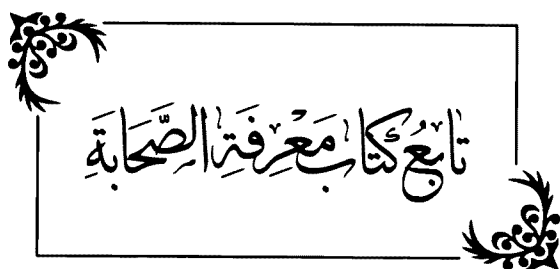 تابع كتاب معرفة الصحابة